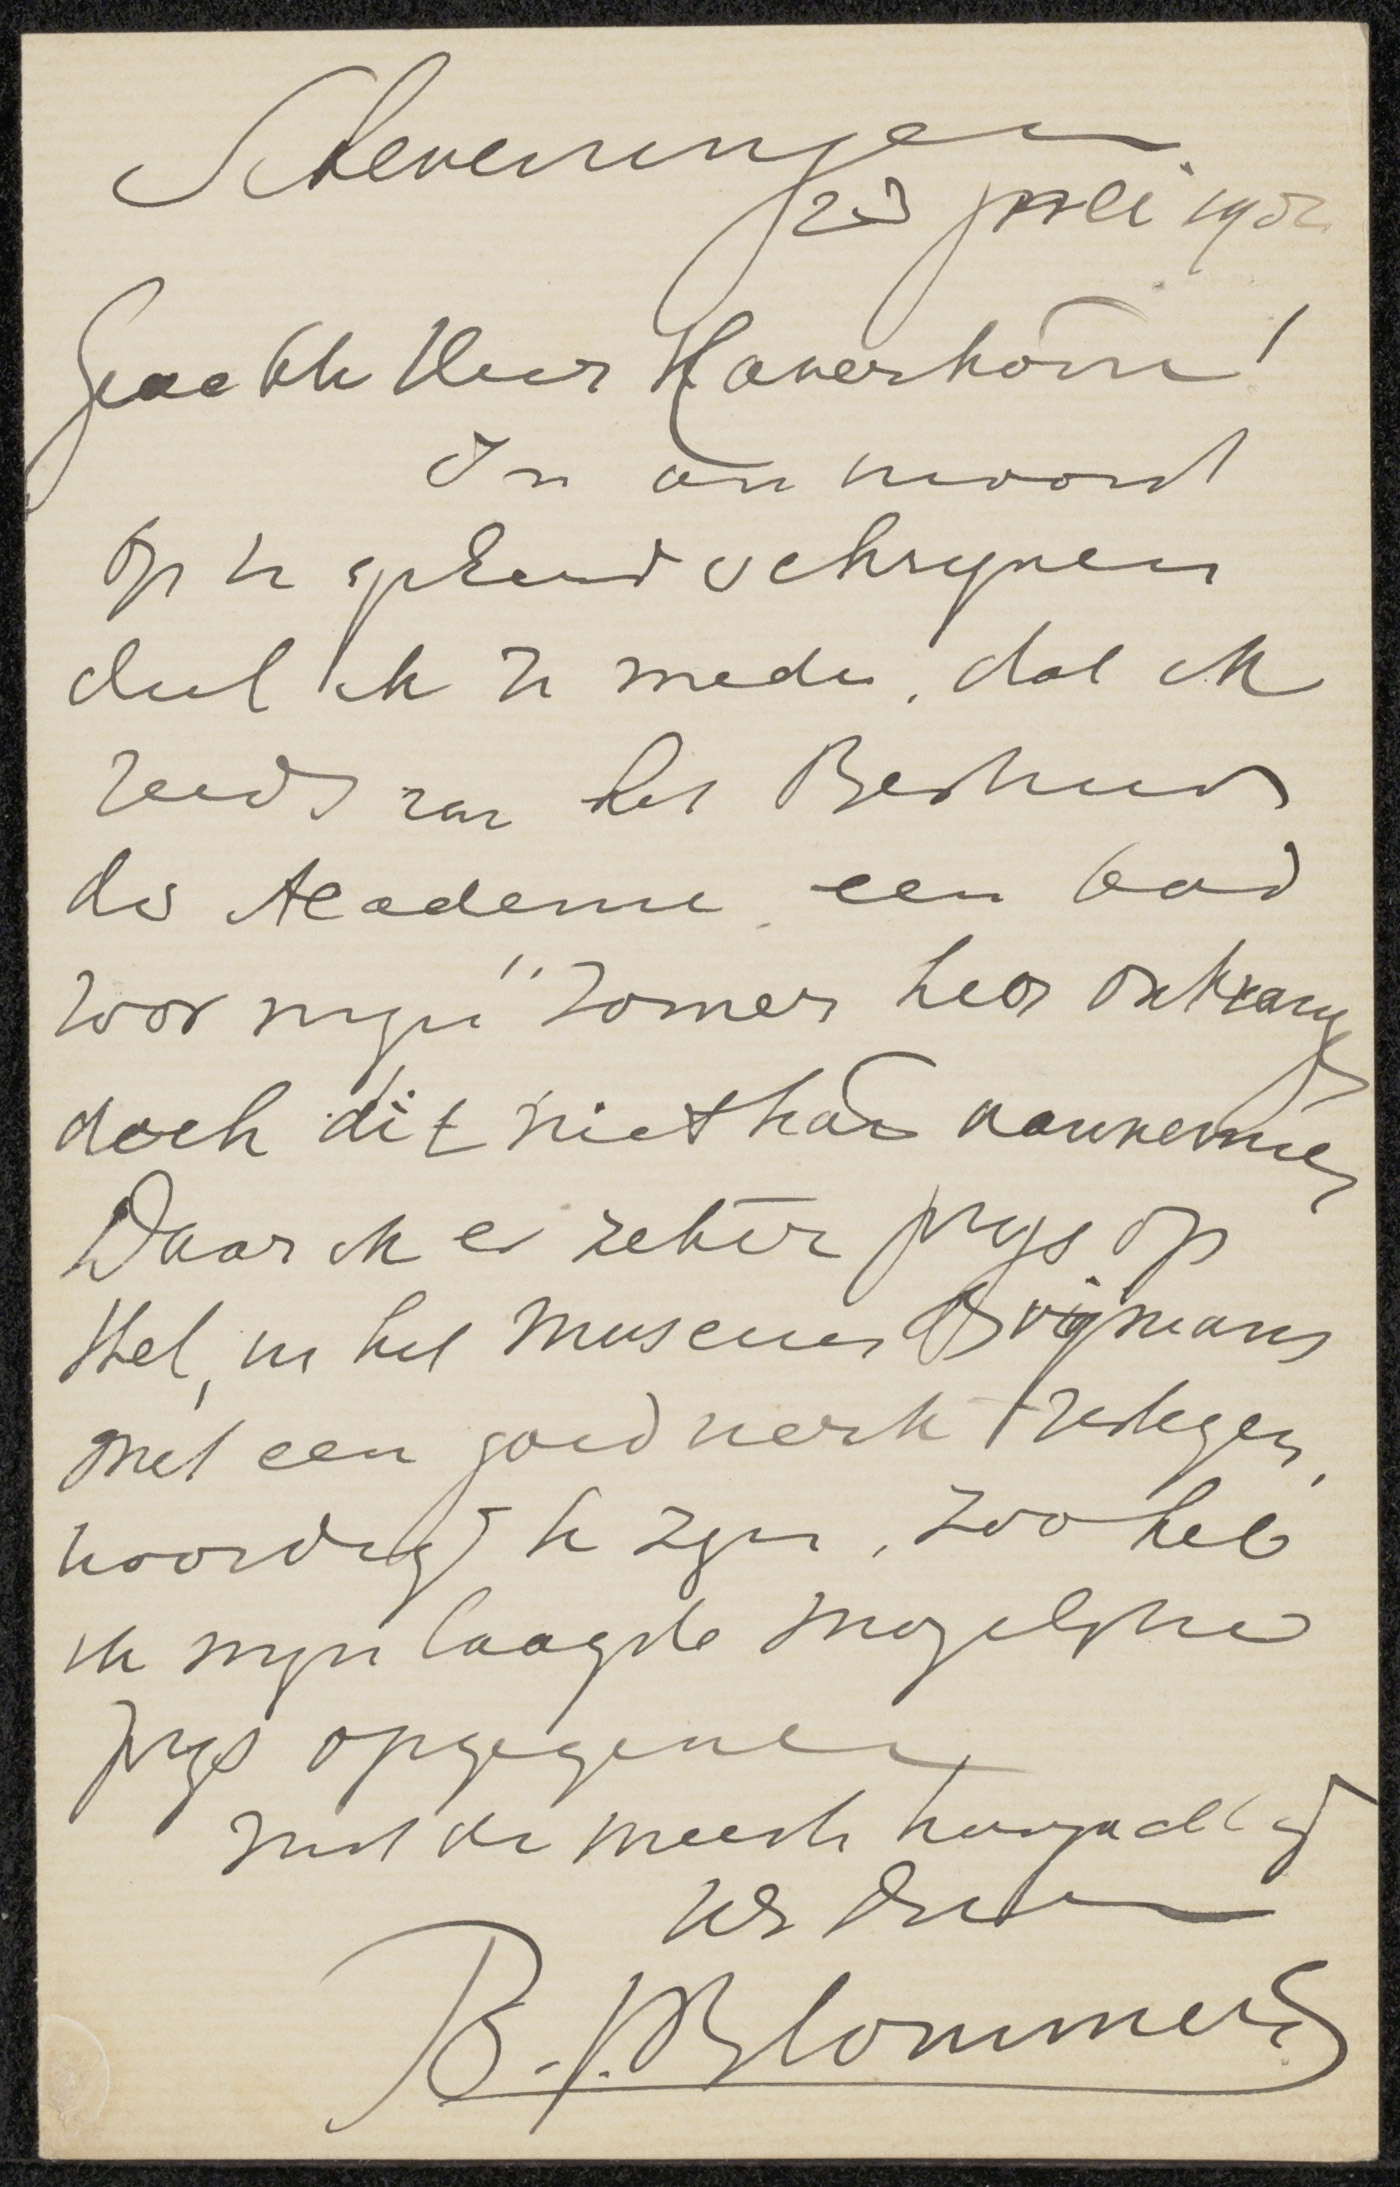 Scheveningen
23 juli 1902
Geachte Heer Haverkorn!
In antwoord
op Uw geëerd schryven
deel ik U mede, dat ik
reeds van het Bestuur
der Academie een bod
voor myn "Zomer heb ontvang
doch dit niet kan aannemen
Daar ik er zeker prys op
stel, in het Museum Boijmans
met een goed werk vertegen,
woordigd te zyn, zoo heb
ik myn laagste mogelyke
prys opgegeven
met de meeste hoogachtg
UEd Dnr
B.J. Blommers